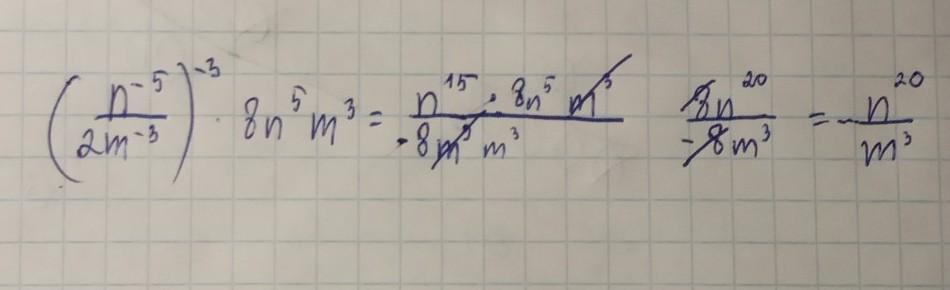 (n⁻⁵/2m⁻³)⁻³ · 8n⁵m³ = n¹⁵ · 8n⁵ m³/-8m³ m³ 8n²⁰/-8m³ = -n²⁰/m³